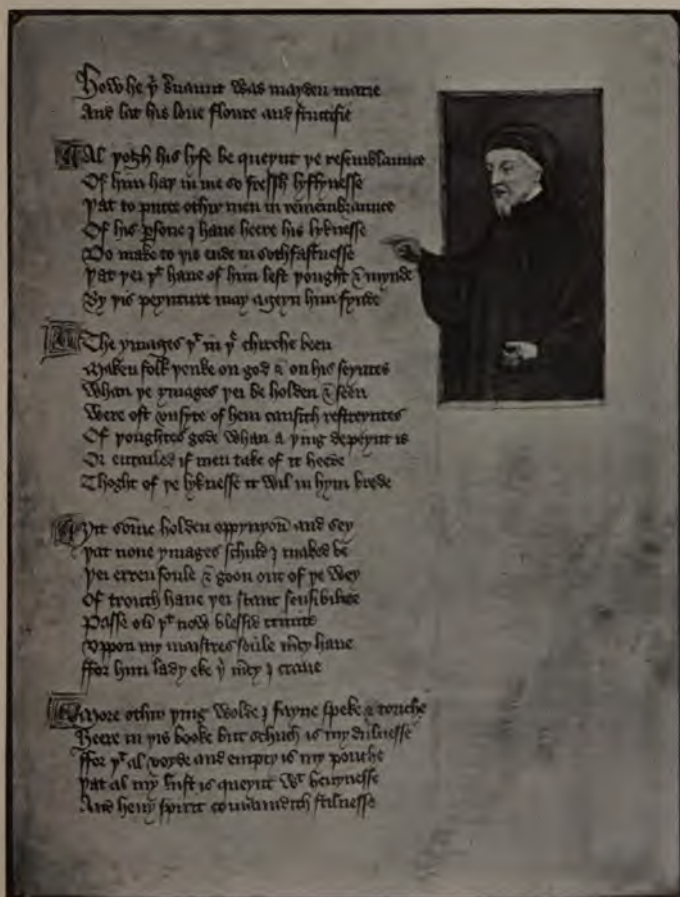 How he þͥ ẜuaunt was mayden marie
And lat his loue floure and fructifie
Al þogh his lyfe be queynt þe resemblaunce
Of him haþ in me so fressh lyflynesse
Þat to putte othir men in remembraunce
Of his ꝑsone I haue heere his lyknesse
Do make to þis ende in sothfastnesse
Þat þei þͭ haue of him left þought & mynde
By þis peynture may ageyn him fynde
The ymages þͭ in þͤ chirche been
Maken folk þenke on god & on his seyntes
Whan þe ymages þei be holden & seen
Were oft vnsyte of hem causith restreyntes
Of þoughtes gode whan a þing depeynt is
Or entailed if men take of it heede
Thoght of þe lyknesse it wil in hym brede
Ȝit some holden oppynyon̄ and sey
Þat none ymages schuld I maked be
Þei erren foule & goon out of þe wey
Of trouth haue þei scant sensibilite
Passe ou̾ þͭ now blessid trinite
Vppon my maistres soule m̄cy haue
Ffor him lady eke þͥ m̄cy I craue
More othir þing wolde I fayne speke & touche
Heere in þis booke but schuch is my dulnesse
Ffor þͭ al voyde and empty is my pouche
Þat al my lust is queynt wͭ heuynesse
And heuy spirit comaundith stilnesse